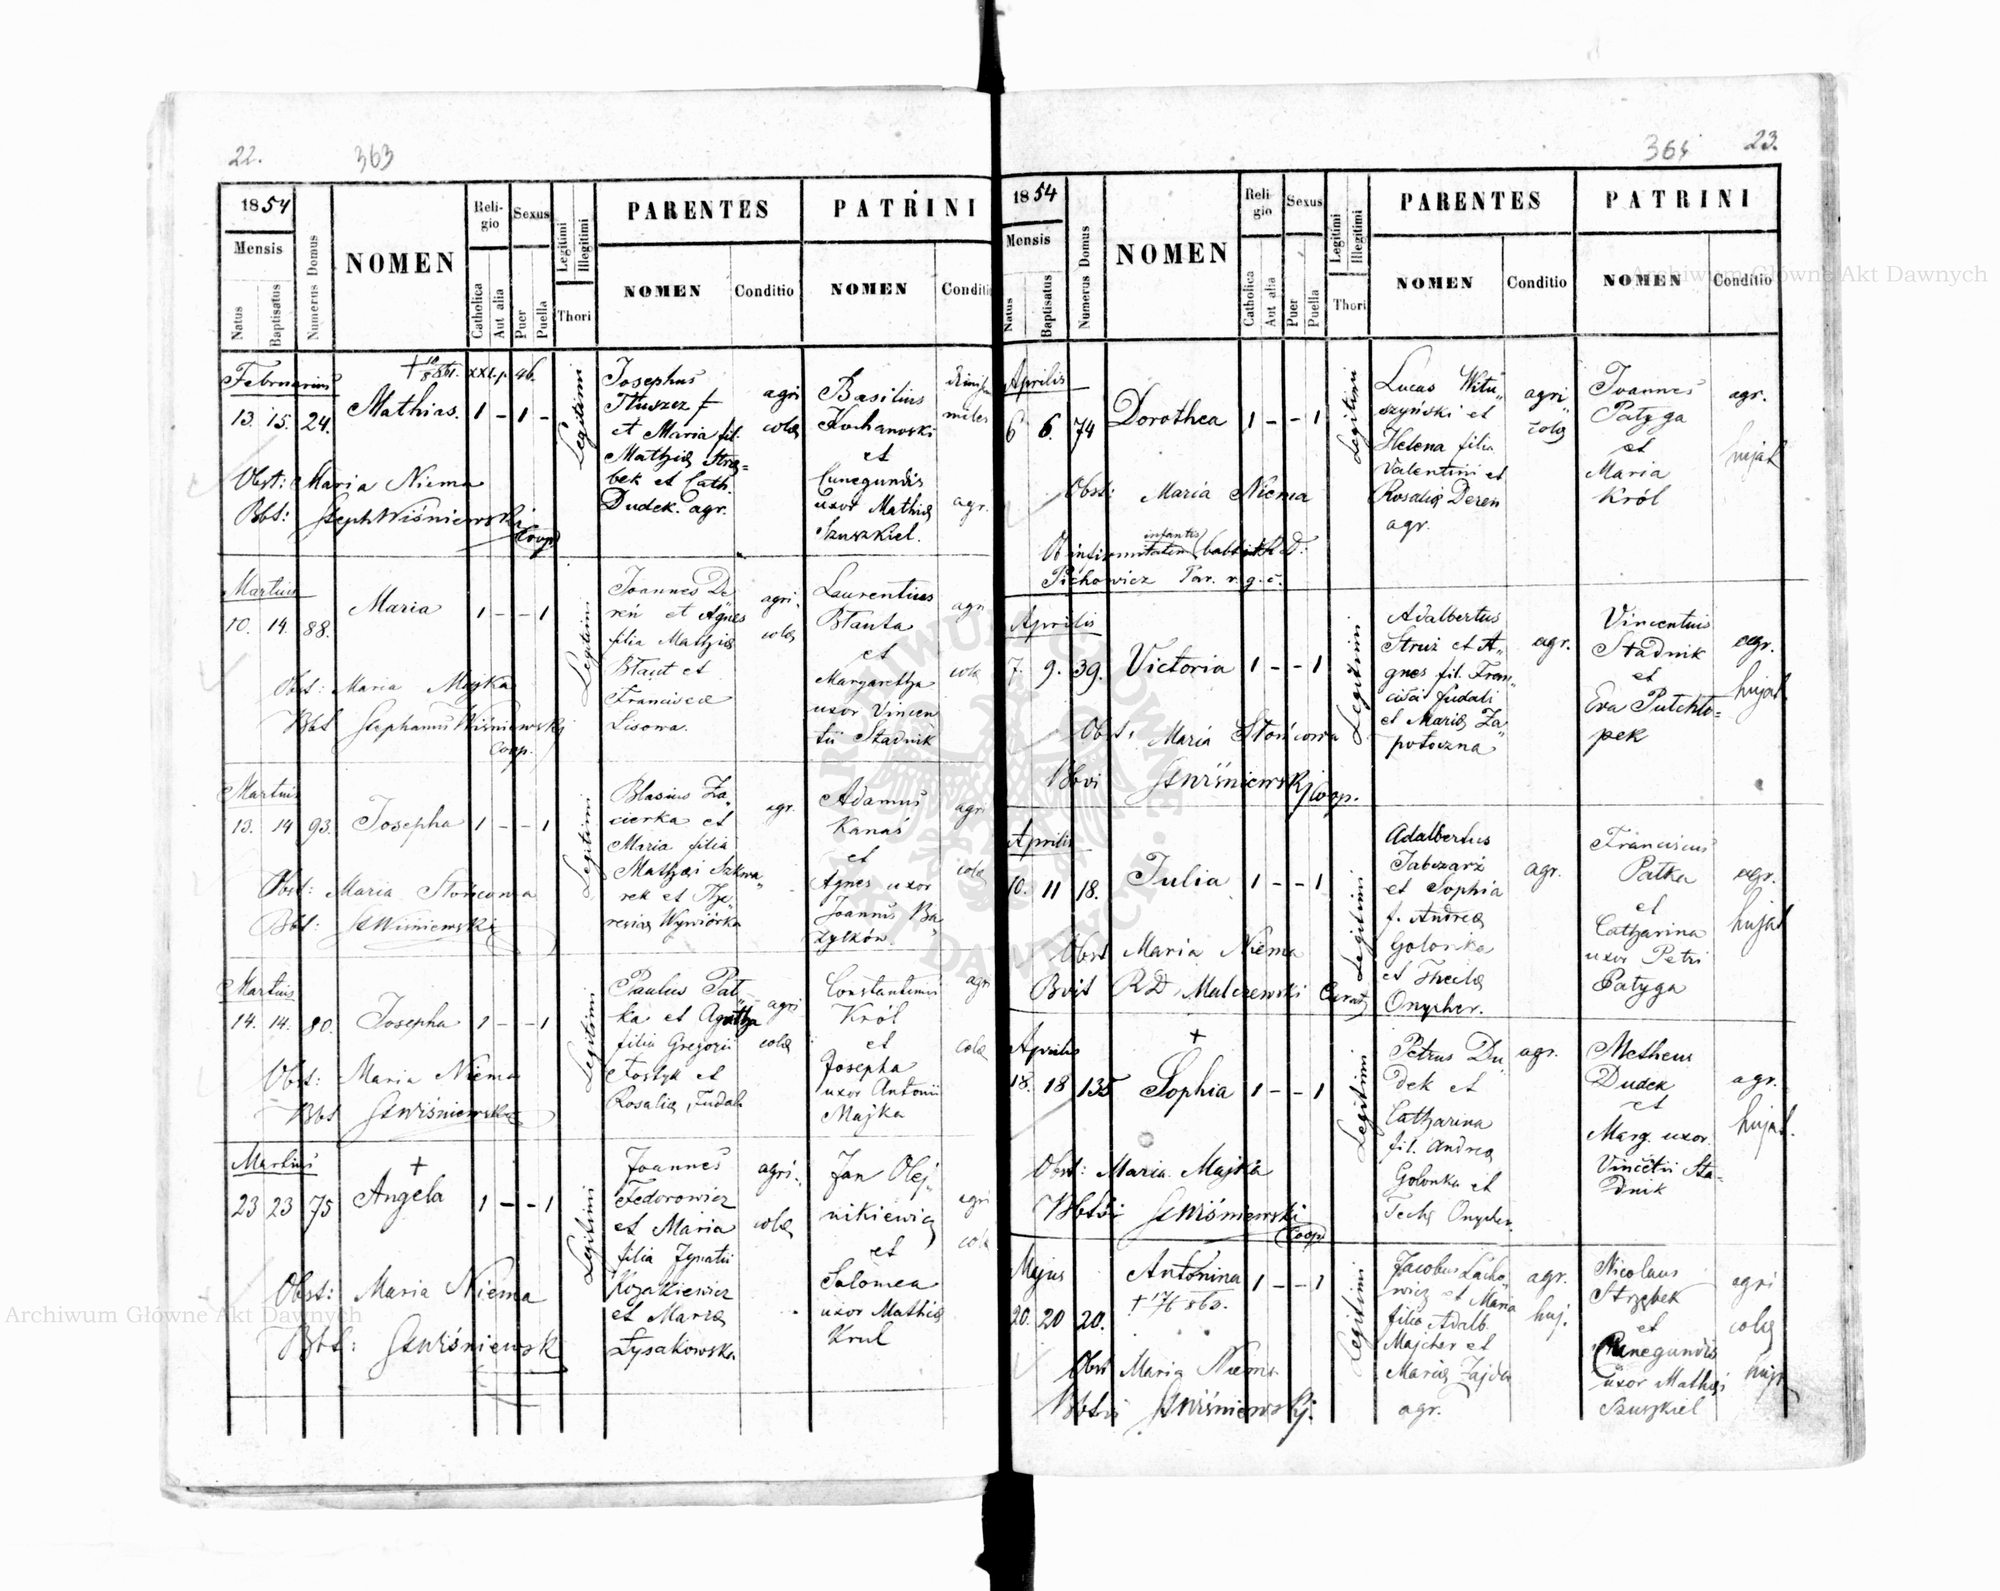 22. 363
1854
Mensis
Natus
Baptisatus
Numerus Domus
NOMEN
Religio
Catholica
Aut alia
Sexus
Puer
Puella
Legitimi
Illegitimi
Thori
PARENTES
NOMEN
Conditio
PATRINI
NOMEN
Conditi
Februarius
13. 15. 24. Mathias. 1 - 1 -
Legitimi
Josephus
Tłuszcz
et Maria fil.
Mathiæ Strę=
bek et Cath.
Dudek. agr.
agri
colæ
Basilius
Kochanowski
et
Cunegundis
uxor Mathiæ
Szuszkiel.
miles
agr.
Obst: Maria Niema
Bbt: Steph Wiśniewski
Coop
Martius
10. 14. 88. Maria 1 - - 1
Legitimi
Joannes De
reń et Agnes
filia Mathiæ
Błaut et
Francisca
Lisowa.
agri.
colæ
Laurentius
Błauta
et
Margaretha
uxor Vincen
tii Stadnik
agri
colæ
Obst: Maria Majka
Bbt Stephanus Wiśniewski
Coop.
Martius
13. 14 93. Josepha 1 - - 1
Legitimi
Blasius Za„
cierka et
Maria filia
Mathæi Szkwa„
rek et The„
resiæ Wywiórka
agr.
Adamus
Kanaś
et
Agnes uxor
Joannis Ba„
zylków.
agri
colæ
Obst: Maria Słońcowa
Bbt: St Wiśniewski
Martius
14. 14. 80. Josepha 1 - - 1
Legitimi
Paulus Pat„
ka et Agatha
filia Gregorii
Fostyk et
Rosaliæ Fudali
agri
colæ
Constantinus
Król
et
Josepha
uxor Antonii
Majka
agri
colæ
Obst: Maria Niema
Bbt St Wiśniewski
Martius
23 23 75 Angela 1 - - 1
Legitimi
Joannes
Fedorowicz
et Maria
filia Ignatii
Kozakiewicz
et Mariæ
Łysakowska.
agri.
colæ
Jan Olej„
nikiewicz
et
Salomea
uxor Mathiæ
Krul
agri
colæ
Obst: Maria Niema
Bbt: St Wiśniewsk
23.
1854
Mensis
Natus
Baptisatus
Numerus Domus
NOMEN
Religio
Catholica
Aut alia
Sexus
Puer
Puella
Legitimi
Illegitimi
Thori
PARENTES
NOMEN
Conditio
PATRINI
NOMEN
Conditio
Aprilis
6 6. 74 Dorothea 1 - - 1
Legitimi
Lucas Witu„
szyński et
Helena filia
Valentini et
Rosaliæ Dereń
agr.
agri„
colæ
Joannes
Patyga
et
Maria
Król
agr.
hujat
Obst: Maria Niema
infantis
Ob infirmitatem
Pichowicz Par. r. g. c.
Aprilis
7. 9. 39. Victoria 1 - - 1
Legitimi
Adalbertus
Struź et A„
gnes fil. Fran„
cisci Fudali
et Mariæ Za„
potoczna
agr.
Vincentius
Stadnik
et
Eva Putchło=
pek
agr.
hujat
Obst: Maria Słońcowa
Bbvi St Wiśniewski Coop.
Aprilis
10. 11 18. Julia 1 - - 1
Legitimi
Adalbertus
Tabczarź
et Sophia
f. Andreæ
Golonka
et Theclæ
Onypher.
agr.
Franciscus
Patka
et
Catharina
uxor Petri
Patyga
agr.
hujat
Obst Maria Niema
Bvit R D. Malczewski Curat
Aprilis
18. 18 135 Sophia 1 - - 1
Legitimi
Petrus Du„
dek et
Catharina
fil. Andreæ
Golonka et
Teclæ Onypher
agr.
Matheus
Dudek
et
Marg. uxor.
Vincētii Sta=
dnik
agr.
hujat.
Obst: Maria Majka
St Wiśniewski
Coop
Majus
20. 20 20. Antonina 1 - - 1
Legitimi
Jacobus Lacho„
wicz et Maria
filia Adalb.
Majcher et
Mariæ Zajda
agr.
agr.
huj.
Nicolaus
Strzębek
et
Cunegundis
uxor Mathæi
Szuszkiel
agri
colæ
hujat
Obst Maria Niema
St Wiśniewski.
Archiwum Główne Akt Dawnych
Archiwum Główne Akt Dawnych
ARCHIWUM GŁÓWNE AKT DAWNYCH